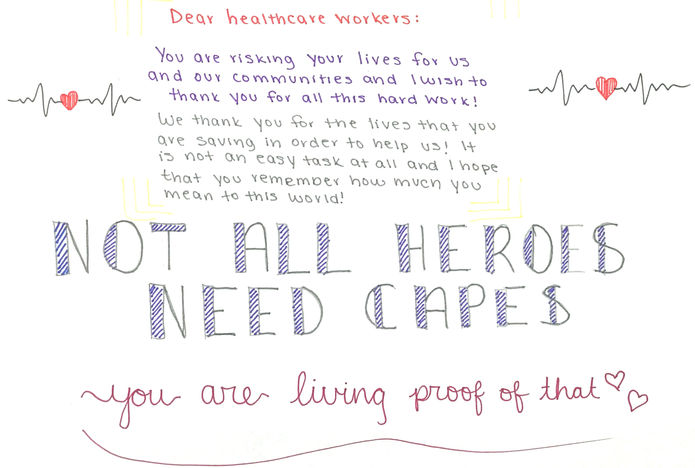 Dear healthcare workers:
You are risking your lives for us
and our communities and I wish to
thank you for all this hard work!
We thank you for the lives that you
are saving in order to help us! It
is not an easy task at all and I hope
that you remember how much you
mean to this world!
NOT ALL HEROES
NEED CAPES
you are living proof of that